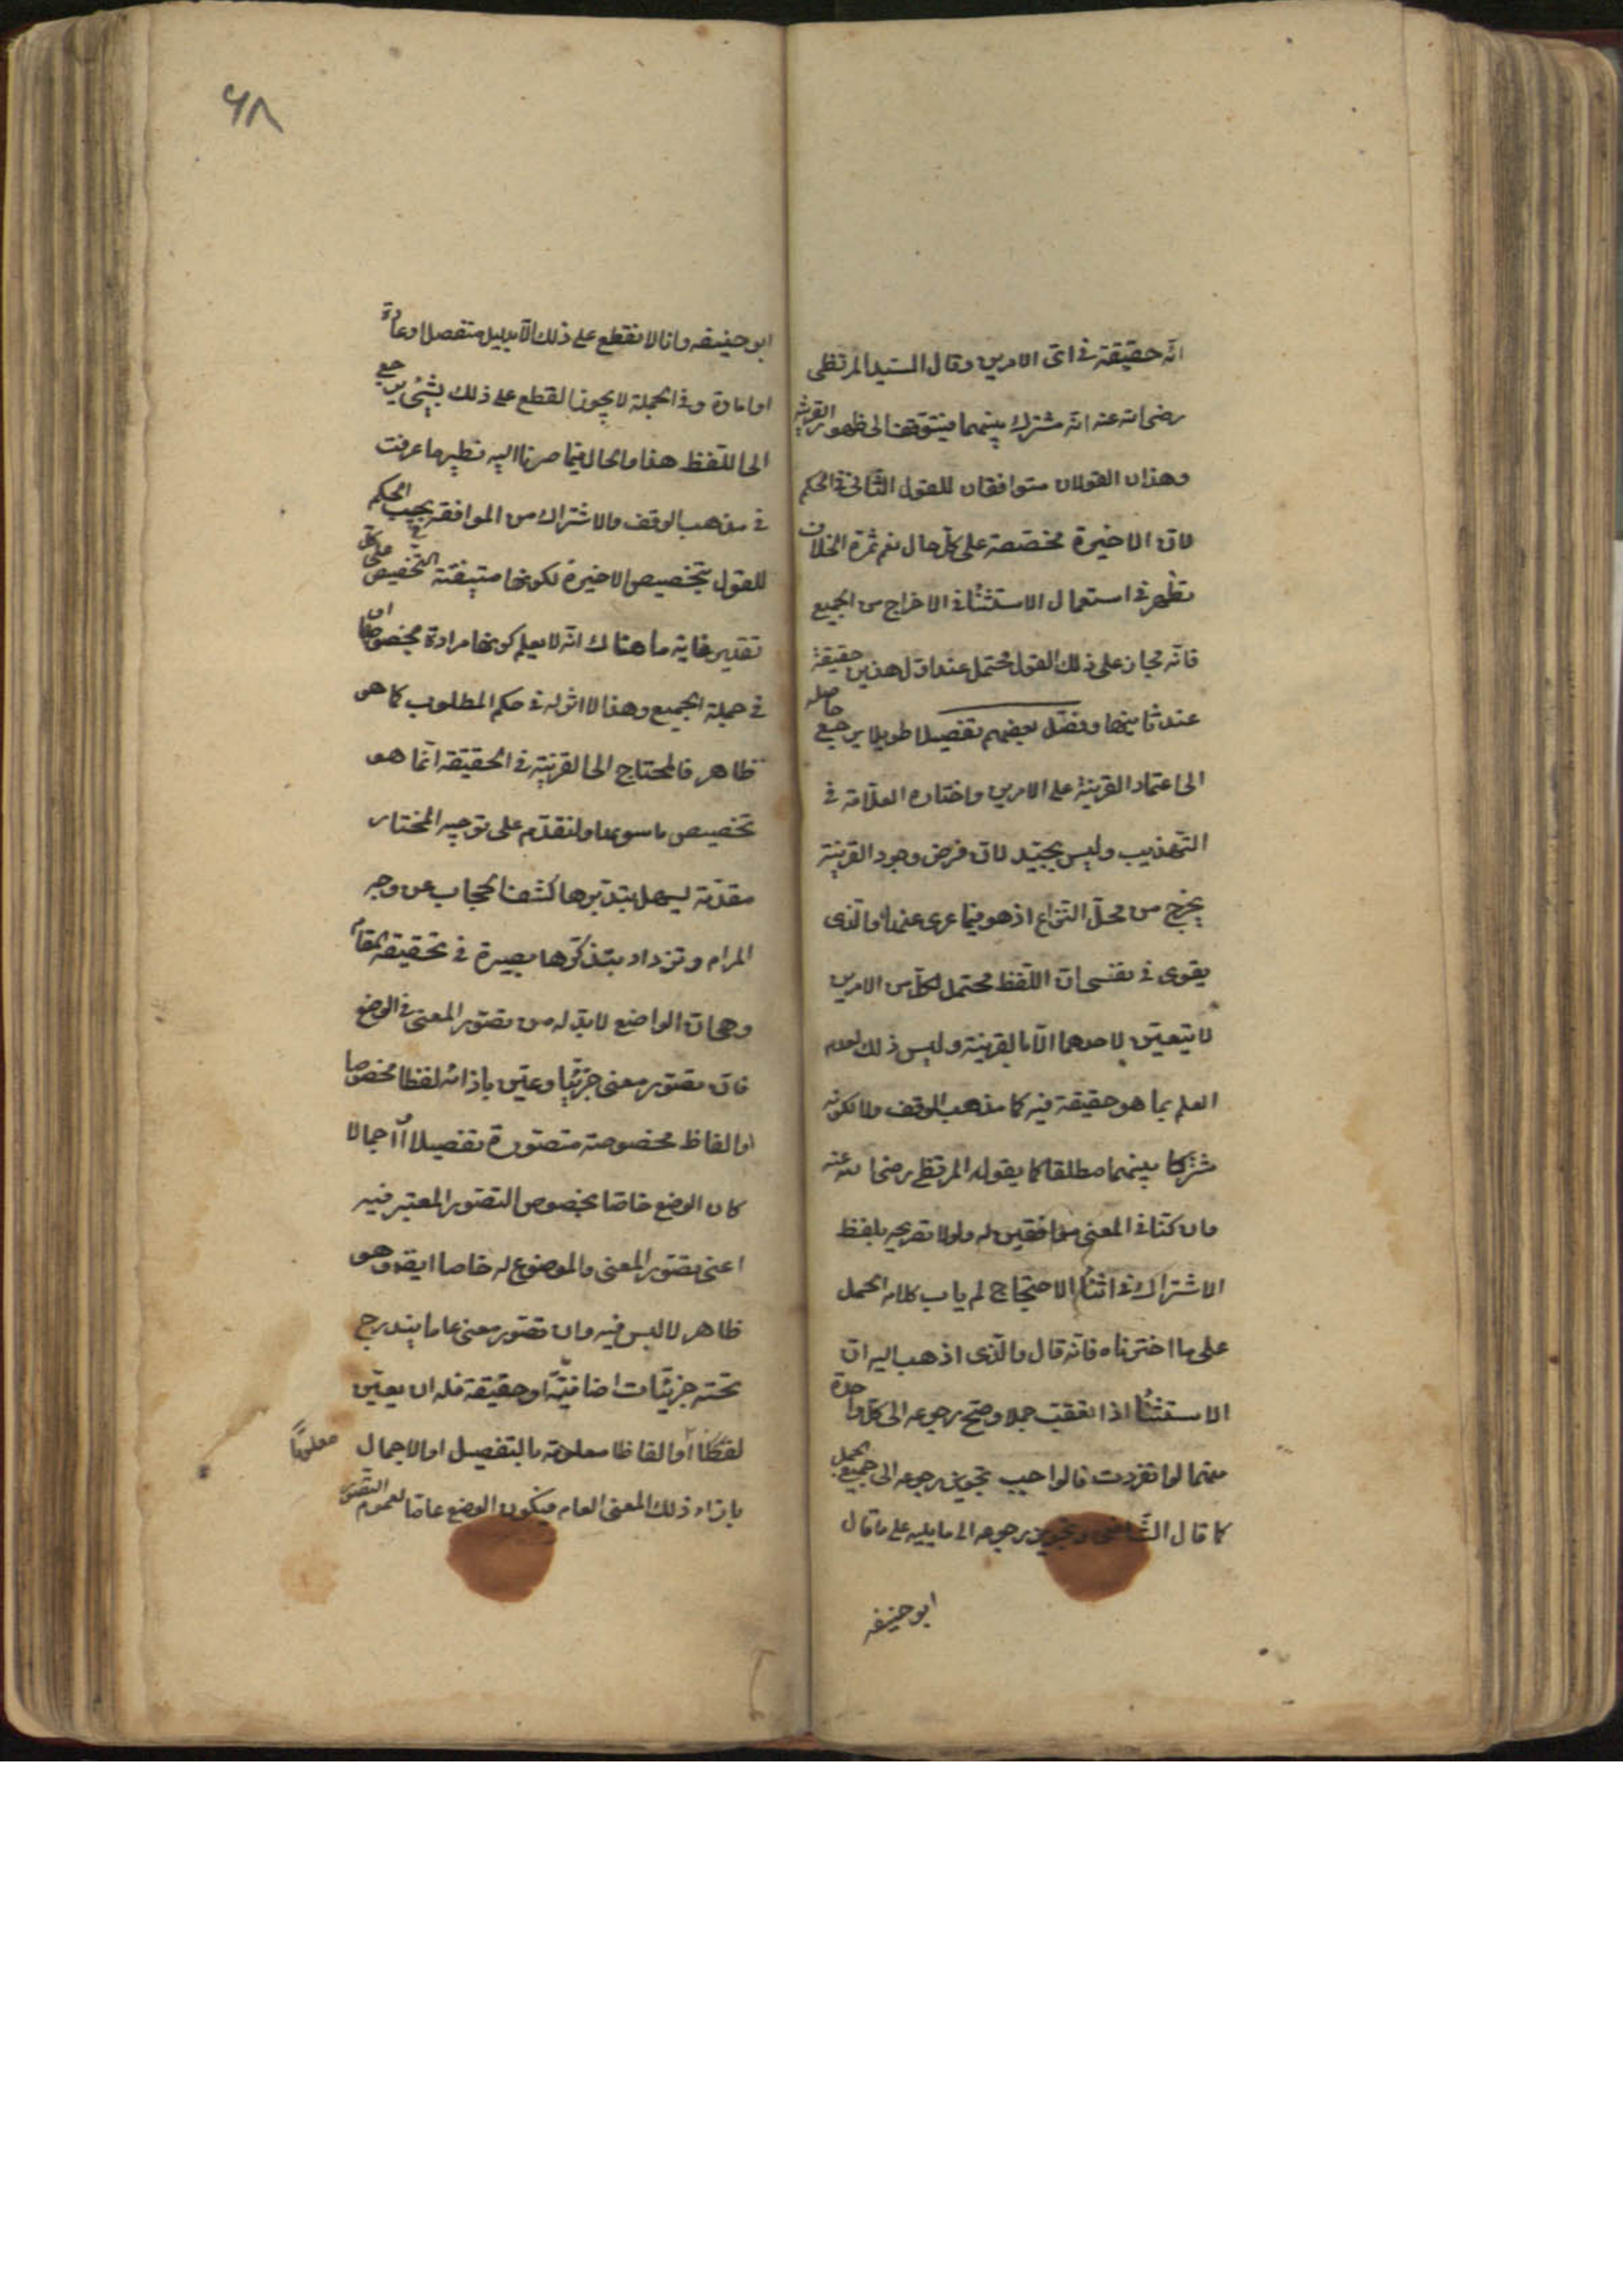 انه حقيقة في اى الامرين وقال السيد المرتظى
رضى الله عنه انه مشترك بينهما فيتوقف الى ظهور القرينة
وهذان القولان متوافقان للقول الثانى فى الحكم
لان الاخيرة مخصصة على كل حال نعم ثمرة الخلاف
تظهر فى استعمال الاستثناء فى الاخراج من الجميع
فانه مجاز على ذلك القول محتمل عند اول هذين حقيقة
عند ثانيهما وفصل بعضهم تفصيلا طويلا يرجع حاصله
الى اعتماد القرينة على الامرين واختاره العلامة فى
التهذيب وليس بجيد لان فرض وجود القرينة
يخرج من محل النزاع اذ هو فيما عرى عنها والذى
يقوى فى نفسى ان اللفظ محتمل لكل من الامرين
لا يتعين لاحدهما الا بالقرينة وليس ذلك لعدم
العلم بما هو حقيقة فيه كما مذهب الوقف ولا لكونه
مشتركا بينهما مطلقا كما يقوله المرتظى رضى الله عنه
وان كنا فى المعنى موافقين له ولولا تصريحه بلفظ
الاشتراك فى اثناء الاحتجاج لم ياب كلامه الحمل
على ما اخترناه فانه قال والذى اذهب اليه ان
الاستثناء اذا تعقب جملا وصح رجوعه الى كل واحدة
منهما لو انفردت فالواجب تجويز رجوعه الى جميع الجمل
كما قال الشافعى وتجويز رجوعه الى ما يليه على ما قال
ابو حنيفه
٦٨
ابو حنيفه وانا لا نقطع على ذلك الا بدليل منفصل او عادة
او امارة وفى الجملة لا يجوز القطع على ذلك بشئ يرجع
الى اللفظ هذا والحال فيما صرنا اليه نظير ما عرفت
فى مذهب الوقف والاشتراك من الموافقة بحسب الحكم
للقول بتخصيص الاخيرة لكونها متيقنة التخصيص على كل
تقدير غاية ما هناك انه لا يعلم كونها مرادة مخصوصها او
فى جملة الجميع وهذا لا اثر له فى حكم المطلوب كما هو
ظاهر فالمحتاج الى القرينة فى الحقيقة انما هو
تخصيص ما سويها ولنقدم على توجيه المختار
مقدمة ليسهل بتدبرها كشف الحجاب عن وجه
المرام وتزداد بتذكرها بصيرة فى تحقيقة المقام
وهى ان الواضع لا بد له من تصور المعنى فى الوضع
فان تصور معنى جزئيا وعين بازائه لفظا مخصوصا
او الفاظ مخصوصة متصورة تفصيلا او اجمالا
كان الوضع خاصا بخصوص التصور المعتبر فيه
اعنى تصور المعنى والموضوع له خاصا ايضا وهو
ظاهر لا لبس فيه وان تصور معنى عاما يندرج
تحته جزئيات اضافية او حقيقة فله ان يعين
لفظا او الفاظا معلومة بالتفصيل او الاجمال معلوما
بازاء ذلك المعنى العام فيكون الوضع عاما لعموم التصور